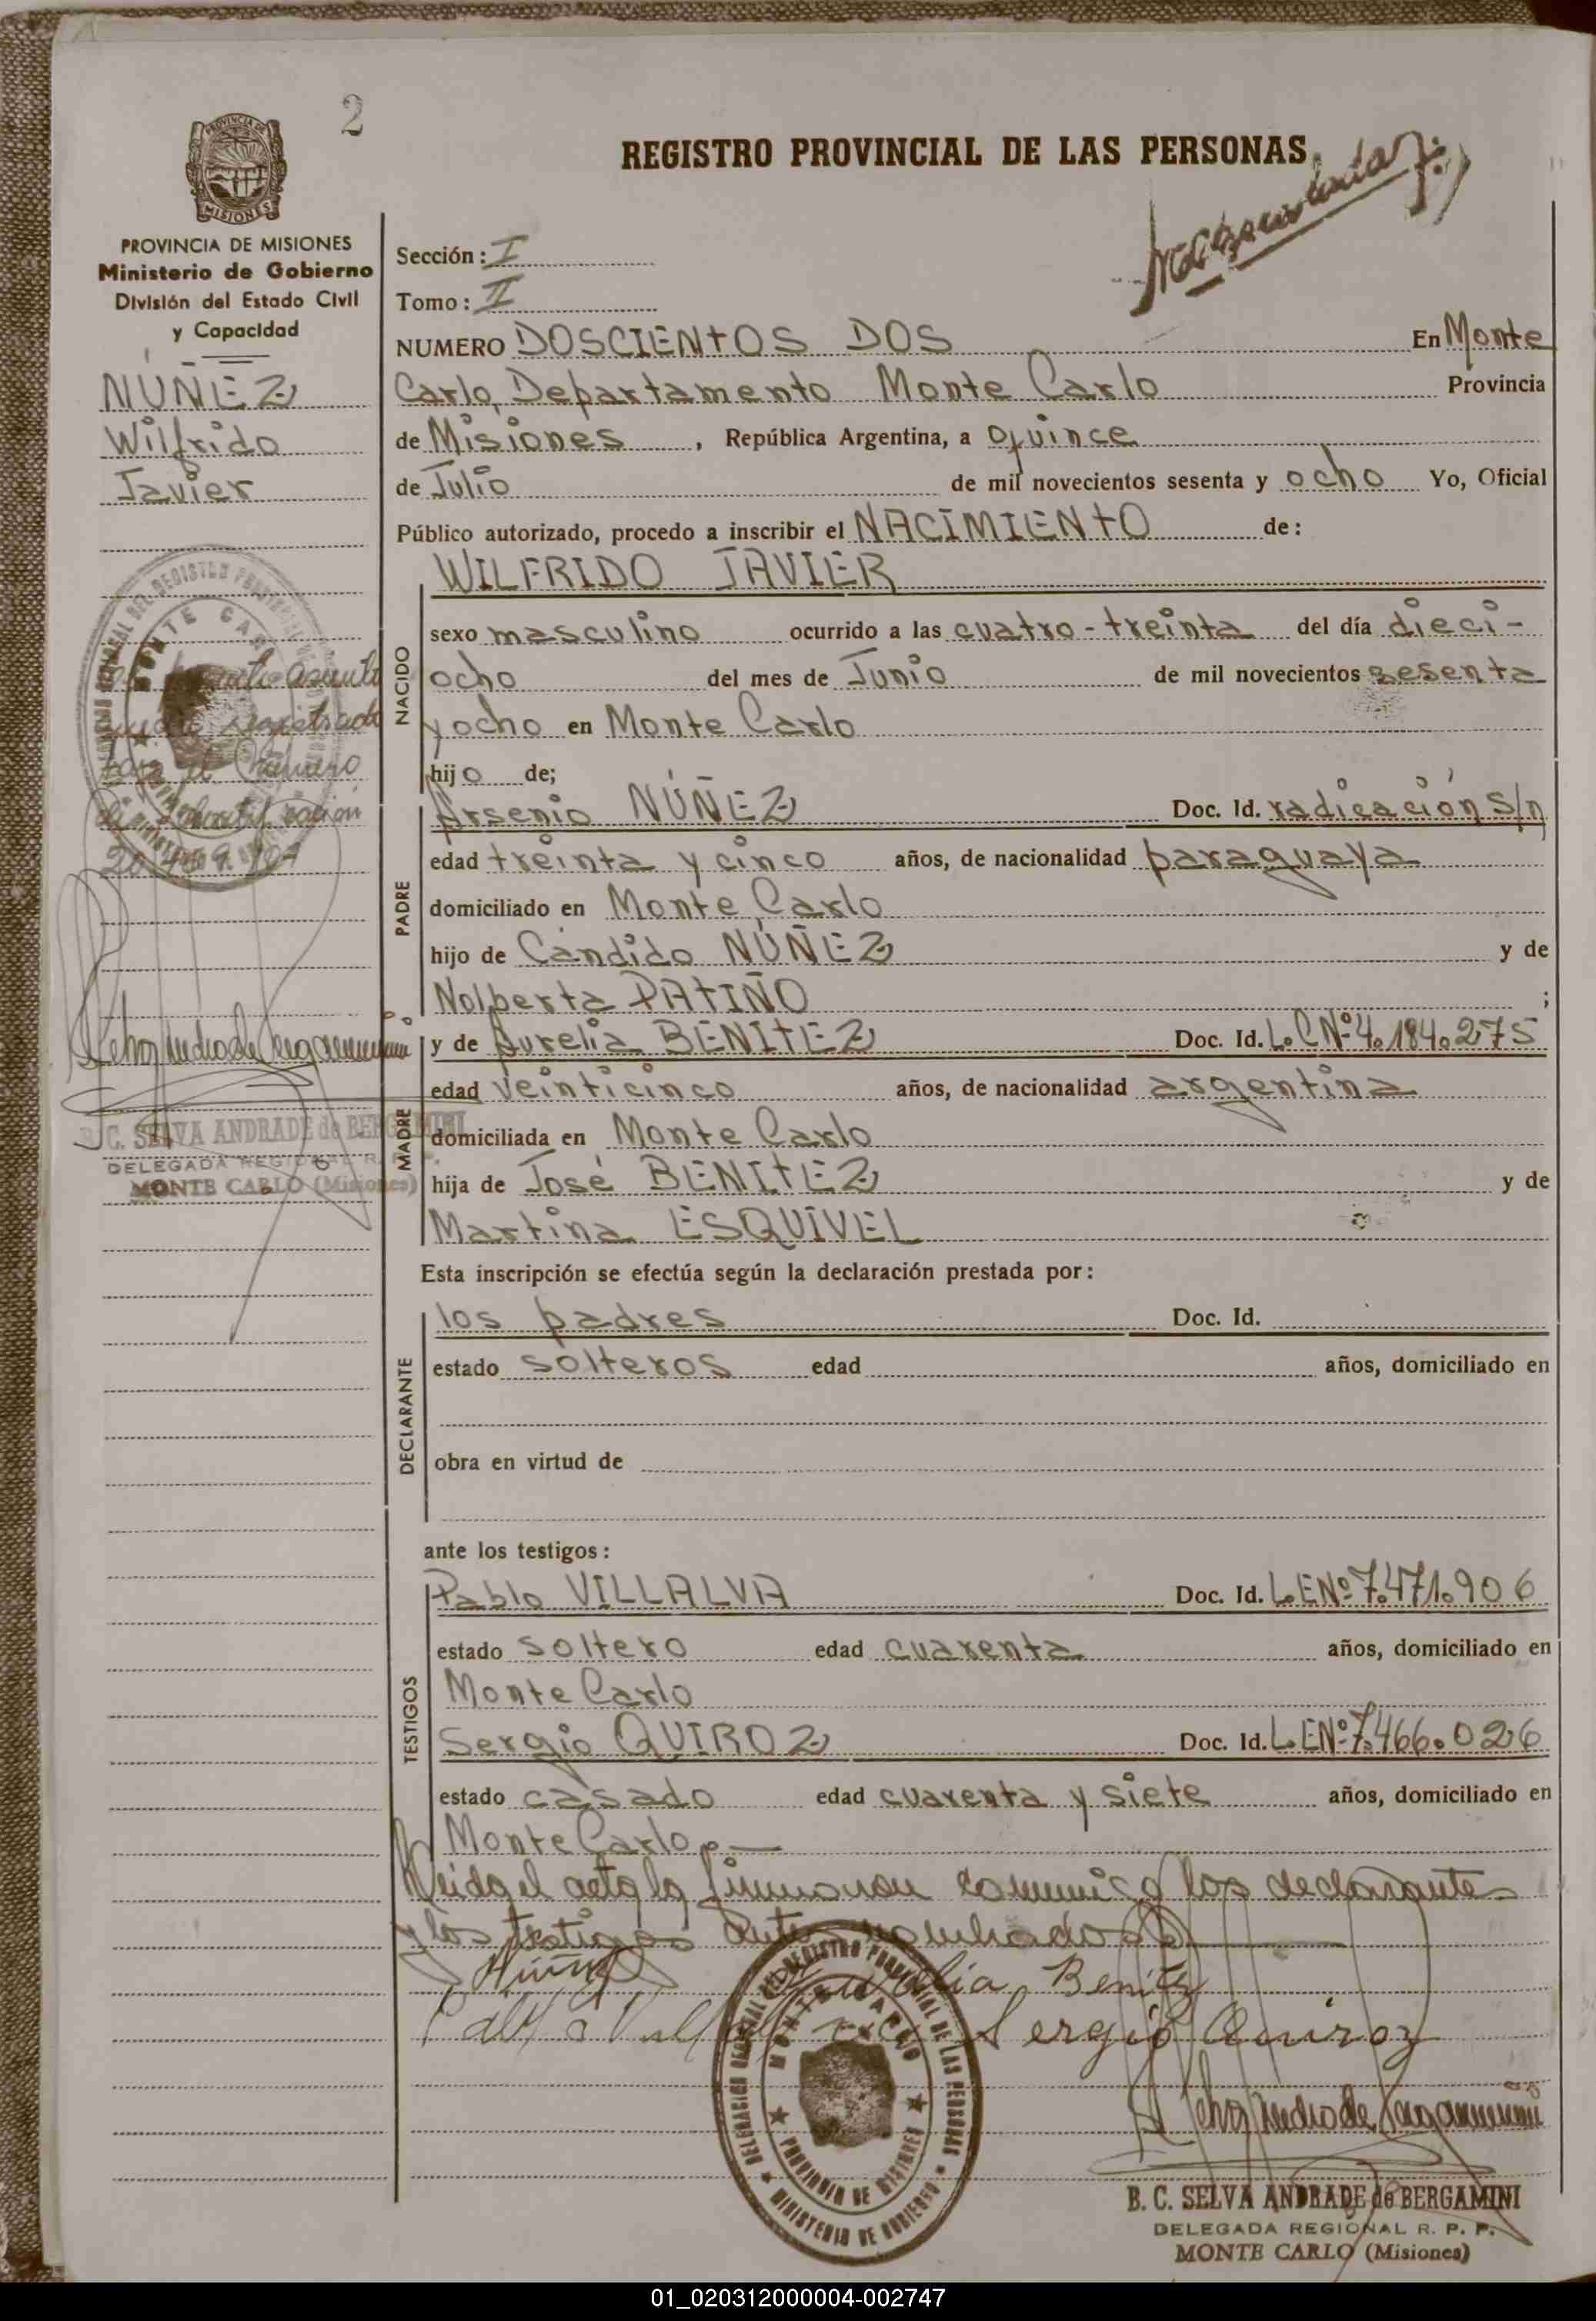 2
PROVINCIA DE MISIONES
REGISTRO PROVINCIAL DE LAS PERSONAS
PROVINCIA DE MISIONES
Ministerio de Gobierno
División del Estado Civil
y Capacidad
NÚÑEZ
Wilfrido
Javier
Sección: I
Tomo: II
NUMERO DOSCIENTOS DOS En Monte
Carlo, Departamento Monte Carlo Provincia
de Misiones, República Argentina, a quince
de Julio de mil novecientos sesenta y ocho Yo, Oficial
Público autorizado, procedo a inscribir el NACIMIENTO de:
NACIDO
WILFRIDO JAVIER
sexo masculino ocurrido a las cuatro-treinta del día dieci-
ocho del mes de Junio de mil novecientos sesenta
y ocho en Monte Carlo
hijo de;
PADRE
Arsenio NÚÑEZ Doc. Id. radicación s/n
edad treinta y cinco años, de nacionalidad paraguaya
domiciliado en Monte Carlo
hijo de Cándido NÚÑEZ y de
Nolberta PATIÑO ;
MADRE
y de Aurelia BENITEZ Doc. Id. L.C Nº 4.184.275
edad veinticinco años, de nacionalidad argentina
domiciliada en Monte Carlo
hija de José BENITEZ y de
Martina ESQUIVEL
B. C. SELVA ANDRADE de BERGAMINI
DELEGADA REGIONAL R. P. P.
MONTE CARLO (Misiones)
Esta inscripción se efectúa según la declaración prestada por:
DECLARANTE
los padres Doc. Id.
estado solteros edad años, domiciliado en
obra en virtud de
ante los testigos:
TESTIGOS
Pablo VILLALVA Doc. Id. L.E Nº 7.471.906
estado soltero edad cuarenta años, domiciliado en
Monte Carlo
Sergio QUIROZ Doc. Id. L.E Nº 7.466.026
estado casado edad cuarenta y siete años, domiciliado en
Monte Carlo.-
Leida el acta la firmaron conmigo los declarantes
y los testigos ante nombrados
Aurelia Benitez
Sergio Quiroz
DELEGACION REGIONAL DEL REGISTRO PROVINCIAL DE LAS PERSONAS
MONTE CARLO
PROVINCIA DE MISIONES
MINISTERIO DE GOBIERNO
B. C. SELVA ANDRADE de BERGAMINI
DELEGADA REGIONAL R. P. P.
MONTE CARLO (Misiones)
01_020312000004-002747